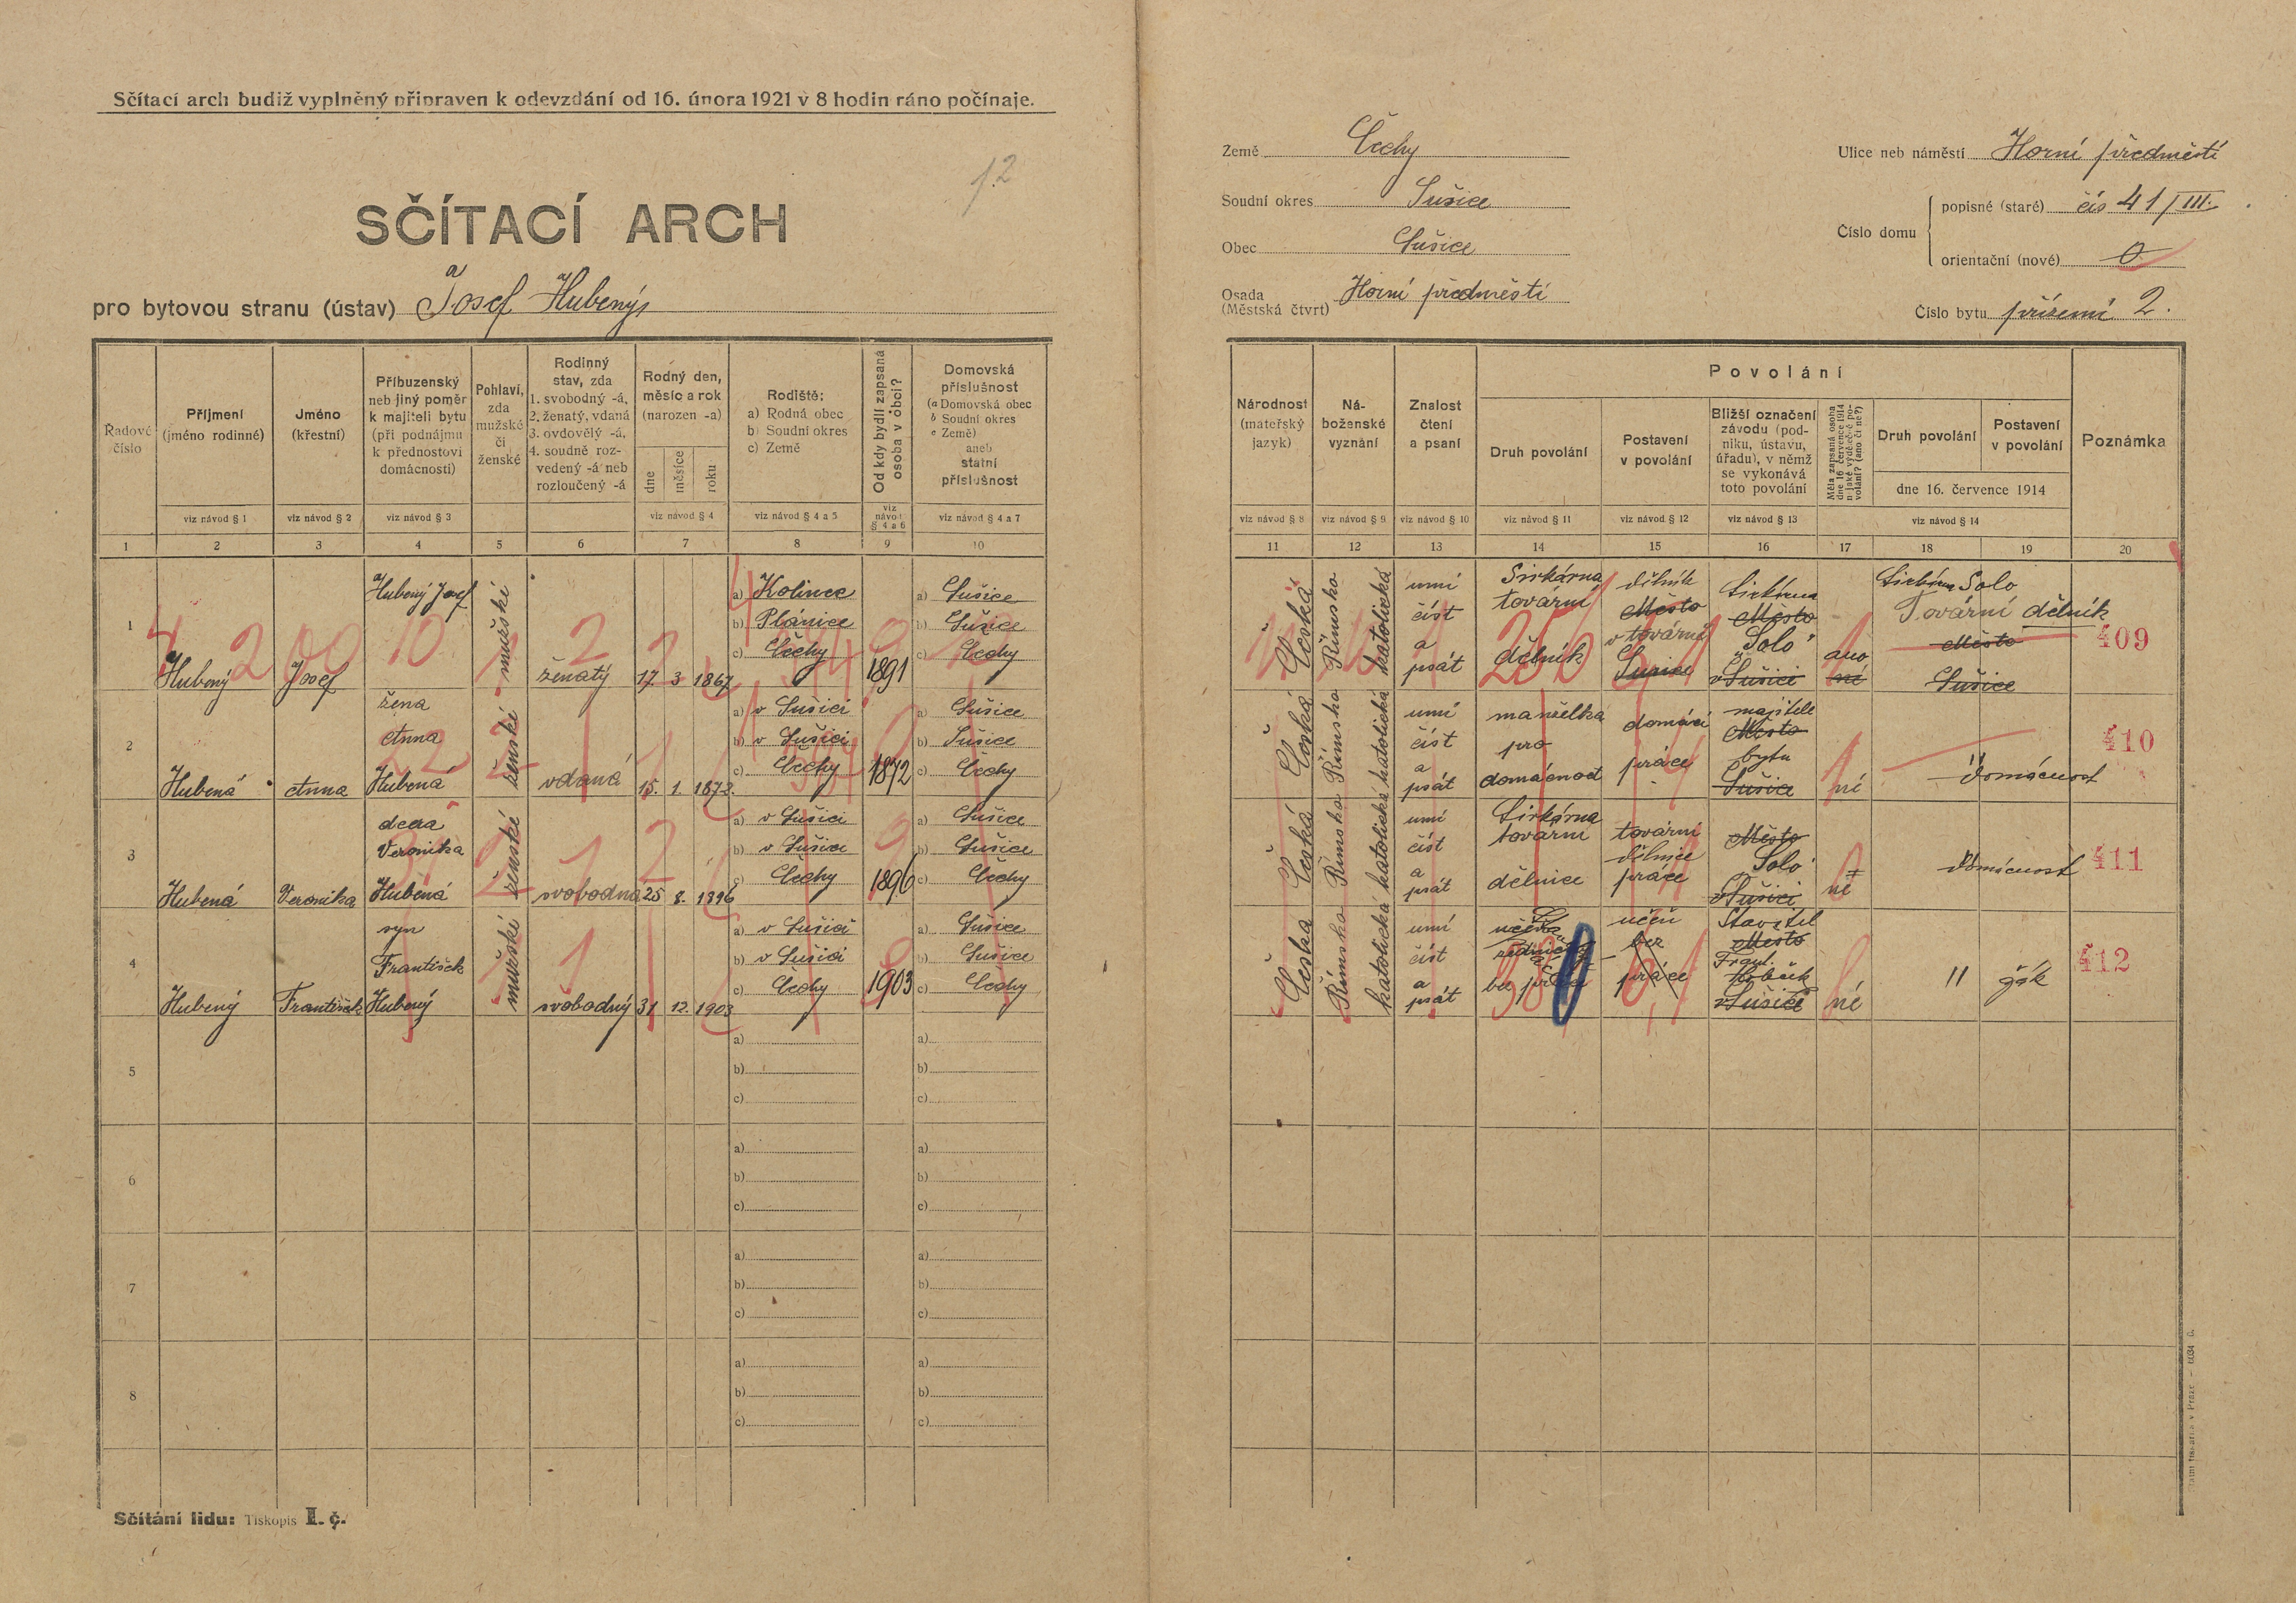 Sčítací arch budiž vyplněný připraven k odevzdání od 16. února 1921 v 8 hodin ráno počínaje.
12
SČÍTACÍ ARCH
pro bytovou stranu (ústav) Josef Hubený
Země Čechy
Soudní okres Sušice
Obec Sušice
Osada (Městská čtvrť) Horní předměstí
Ulice neb náměstí Horní předměstí
Číslo domu
popisné (staré) čís 41/III.
orientační (nové) 0
Číslo bytu přízemí 2.
Řadové číslo
Příjmení (jméno rodinné)
Jméno (křestní)
Příbuzenský neb jiný poměr k majiteli bytu (při podnájmu k přednostovi domácnosti)
Pohlaví, zda mužské či ženské
Rodinný stav, zda
1. svobodný -á,
2. ženatý, vdaná
3. ovdovělý -á,
4. soudně rozvedený -á neb rozloučený -á
Rodný den, měsíc a rok (narozen -a)
dne
měsíce
roku
Rodiště:
a) Rodná obec
b) Soudní okres
c) Země
Od kdy bydlí zapsaná osoba v obci?
Domovská příslušnost
(a Domovská obec
b Soudní okres
c Země)
aneb
státní příslušnost
viz návod § 1
viz návod § 2
viz návod § 3
viz návod § 4
viz návod § 4 a 5
viz návod § 4 a 6
viz návod § 4 a 7
1 2 3 4 5 6 7 8 9 10
Národnost (mateřský jazyk)
Náboženské vyznání
Znalost čtení a psaní
Povolání
Druh povolání
Postavení v povolání
Bližší označení závodu (podniku, ústavu, úřadu), v němž se vykonává toto povolání
Měla zapsaná osoba dne 16 července 1914 nějaké výdělečné povolání? (ano či ne?)
Druh povolání
Postavení v povolání
dne 16. července 1914
Poznámka
viz návod § 8
viz návod § 9
viz návod § 10
viz návod § 11
viz návod § 12
viz návod § 13
viz návod § 14
11 12 13 14 15 16 17 18 19 20
1
Hubený
Josef
Hubený Josef
mužské
ženatý
17. 3 1867
a) Kolinec
b) Plánice
c) Čechy
1891
a) Sušice
b) Sušice
c) Čechy
Česká
Římsko katolická
umí
číst
a
psát
Sirkárna
tovární
dělník
dělník
Město
v tovární
Sušice
Sirkárna
Město
"Solo"
v Sušici
ano
né
Sirkárna Solo
Tovární dělník
Město
Sušice
409
2
Hubená
Anna
žena
Anna
Hubená
ženské
vdaná
15. 1. 1872.
a) v Sušici
b) v Sušici
c) Čechy
1872
a) Sušice
b) Sušice
c) Čechy
Česká
Římsko katolická
umí
číst
a
psát
manželka
pro
domácnost
domácí
práce
majitele
Město
bytu
Sušice
né
Domácnost
410
3
Hubená
Veronika
dcera
Veronika
Hubená
ženské
svobodna
25 8. 1896
a) v Sušici
b) v Sušice
c) Čechy
1896
a) Sušice
b) Sušice
c) Čechy
Česká
Římsko katolická
umí
číst
a
psát
Sirkárna
tovární
dělnice
tovární
dělnice
práce
Město
Solo
v Sušici
né
Domácnost
411
4
Hubený
František
syn
František
Hubený
mužské
svobodný
31 12. 1903
a) v Sušici
b) v Sušici
c) Čechy
1903
a) Sušice
b) Sušice
c) Čechy
Česká
Římsko katolická
umí
číst
a
psát
bez práce
učeň
bez
práce
Stavitel
Město
v Sušice
né
11 žák
412
5
a)
b)
c)
a)
b)
c)
6
a)
b)
c)
a)
b)
c)
7
a)
b)
c)
a)
b)
c)
8
a)
b)
c)
a)
b)
c)
Sčítání lidu: Tiskopis I. č.